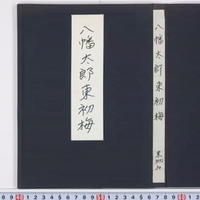 八幡太郎東初梅
八幡太郎東初梅